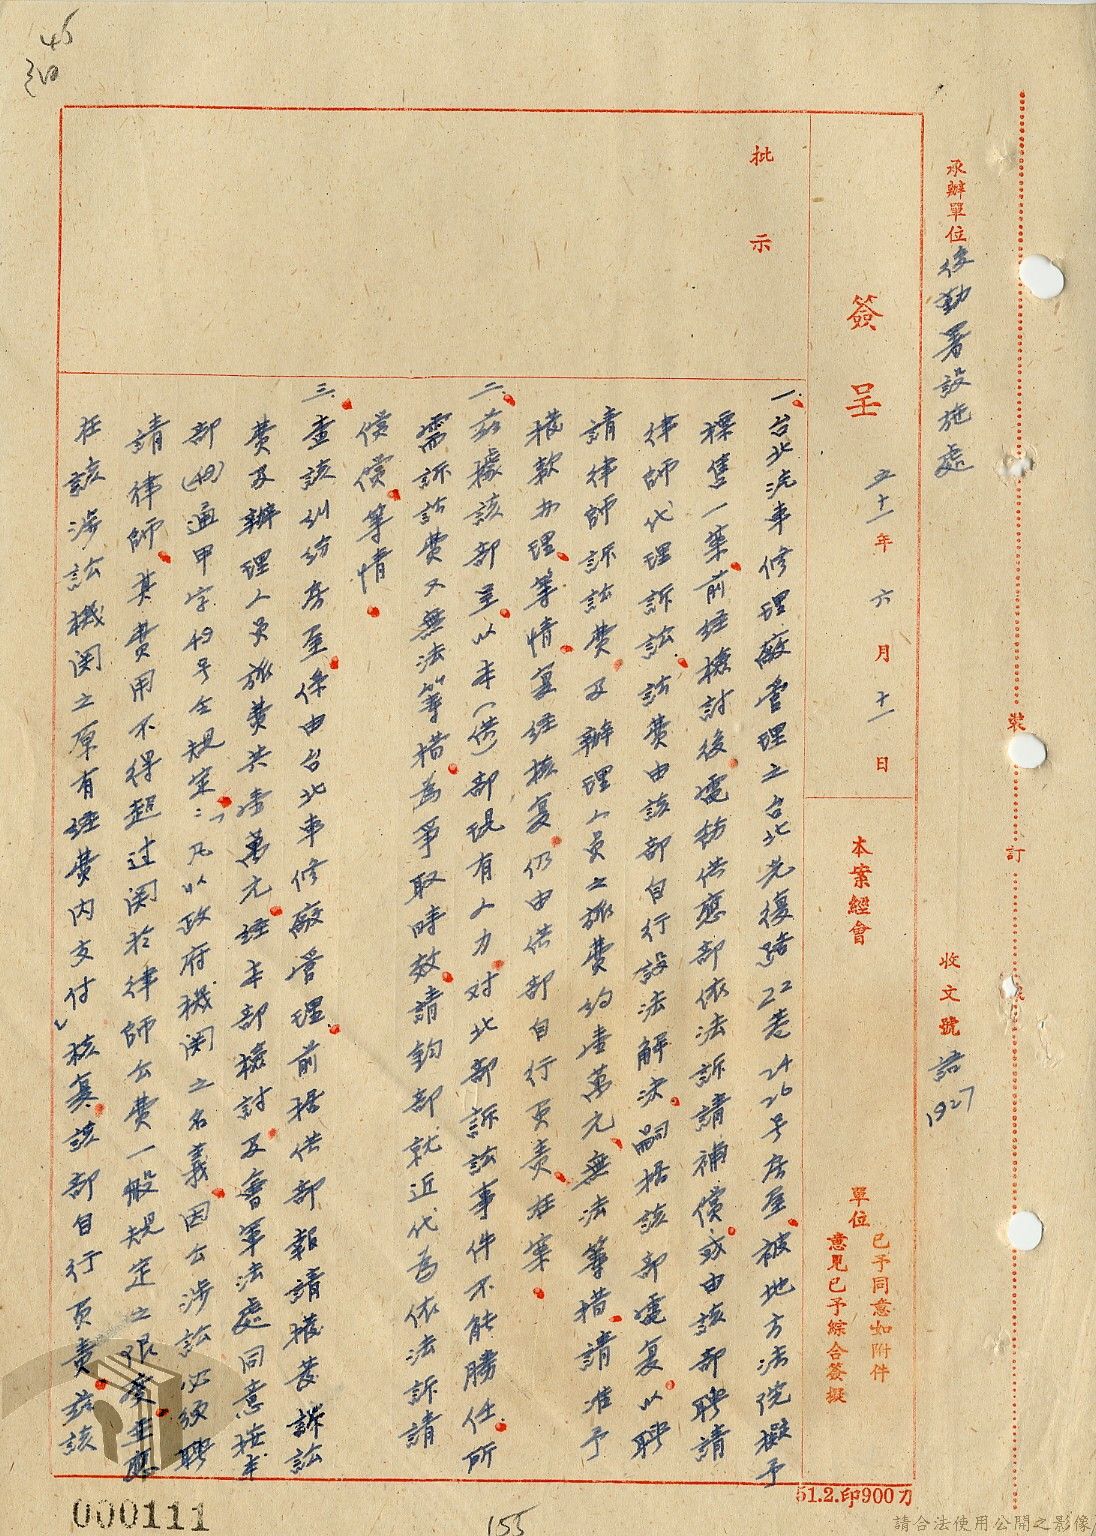 承辦單位 後勤署設施處
收文號 諮1927
裝
訂
線
簽呈
五十一年六月十一日
本案經會
單位
已予同意如附件
意見已予綜合簽擬
批示
一、台北汽車修理廠管理之台北光復路22巷24 26号房屋被地方法院擬予
標售一案前經檢討後電飭供應部依法訴請補償或由該部聘請
律師代理訴訟訟費由該部自行設法解決嗣據該部電复以聘
請律師訴訟費及辦理人員之旅費約壹萬元無法筹措請准予
撥款办理等情复經核复仍由供部自行負責在案
二、茲據該部呈以本(供)部現有人力对北部訴訟事件不能勝任所
需訴訟費又無法筹措為爭取時效請鈞部就近代為依法訴請
償等情
三、查該糾紛房屋係由台北車修廠管理前據供部報請撥發訴訟
費及辦理人員旅費共壹萬元經本部檢討及會軍法處同意按本
部(49)通甲字49号令規定：「凡以政府機関之名義因公涉訟必須聘
請律師其費用不得超过関於律師公費一般規定之限度並應
在該涉訟機関之原有經費內支付」核复該部自行負責茲該
51.2.印900刀
000111
155
請合法使用公開之影像